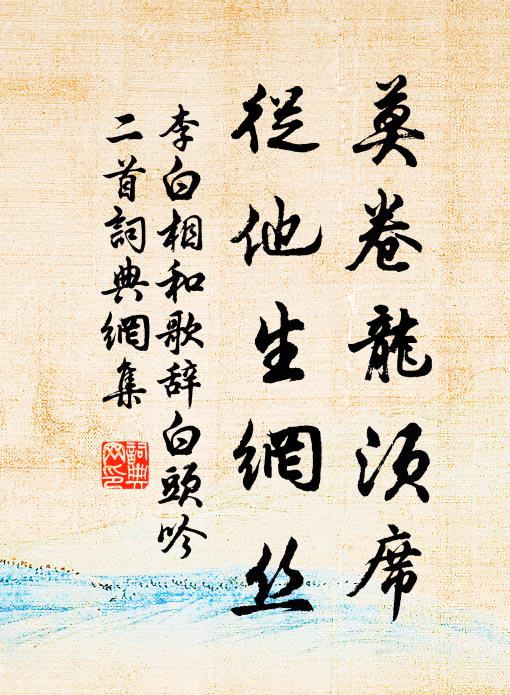 莫卷龍须席
從他生網丝
李白相和歌辞白頭吟
二首詞典網集
詞典
网印